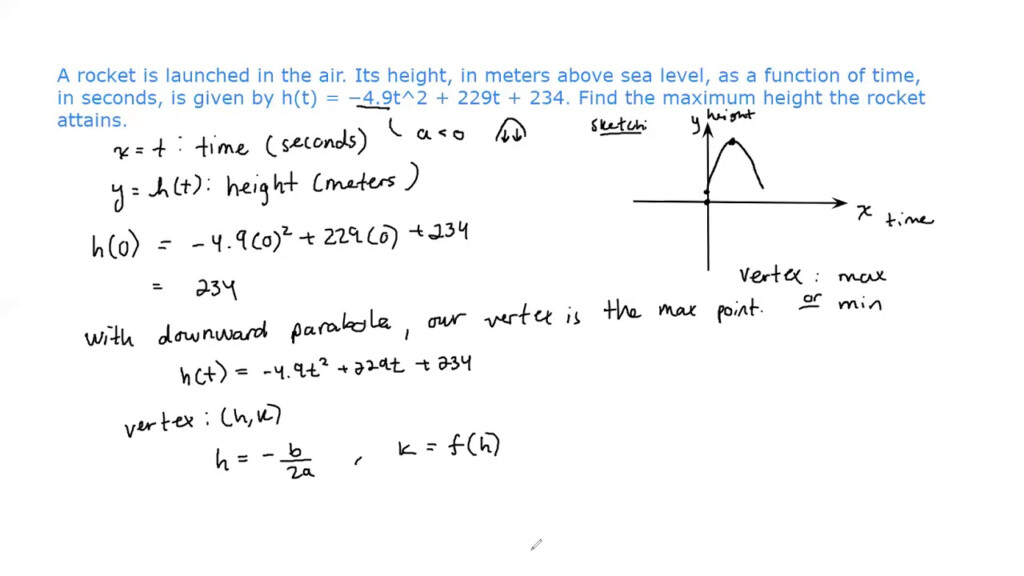 A rocket is launched in the air. Its height, in meters above sea level, as a function of time,
in seconds, is given by h(t) = −4.9t^2 + 229t + 234. Find the maximum height the rocket
attains.
a < 0
sketch:
y height
x = t : time (seconds)
y = h(t): height (meters)
x time
h(0) = -4.9(0)² + 229(0) + 234
= 234
vertex : max
or min
with downward parabola, our vertex is the max point.
h(t) = -4.9t² + 229t + 234
vertex : (h, k)
h = - b/2a , k = f(h)